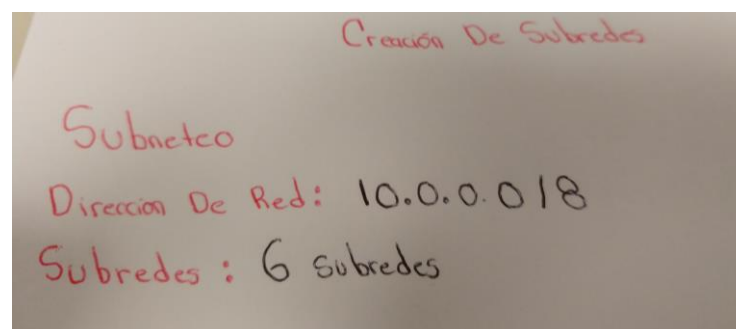 Creación De Subredes
Subneteo
Direccion De Red: 10.0.0.0/8
Subredes: 6 subredes